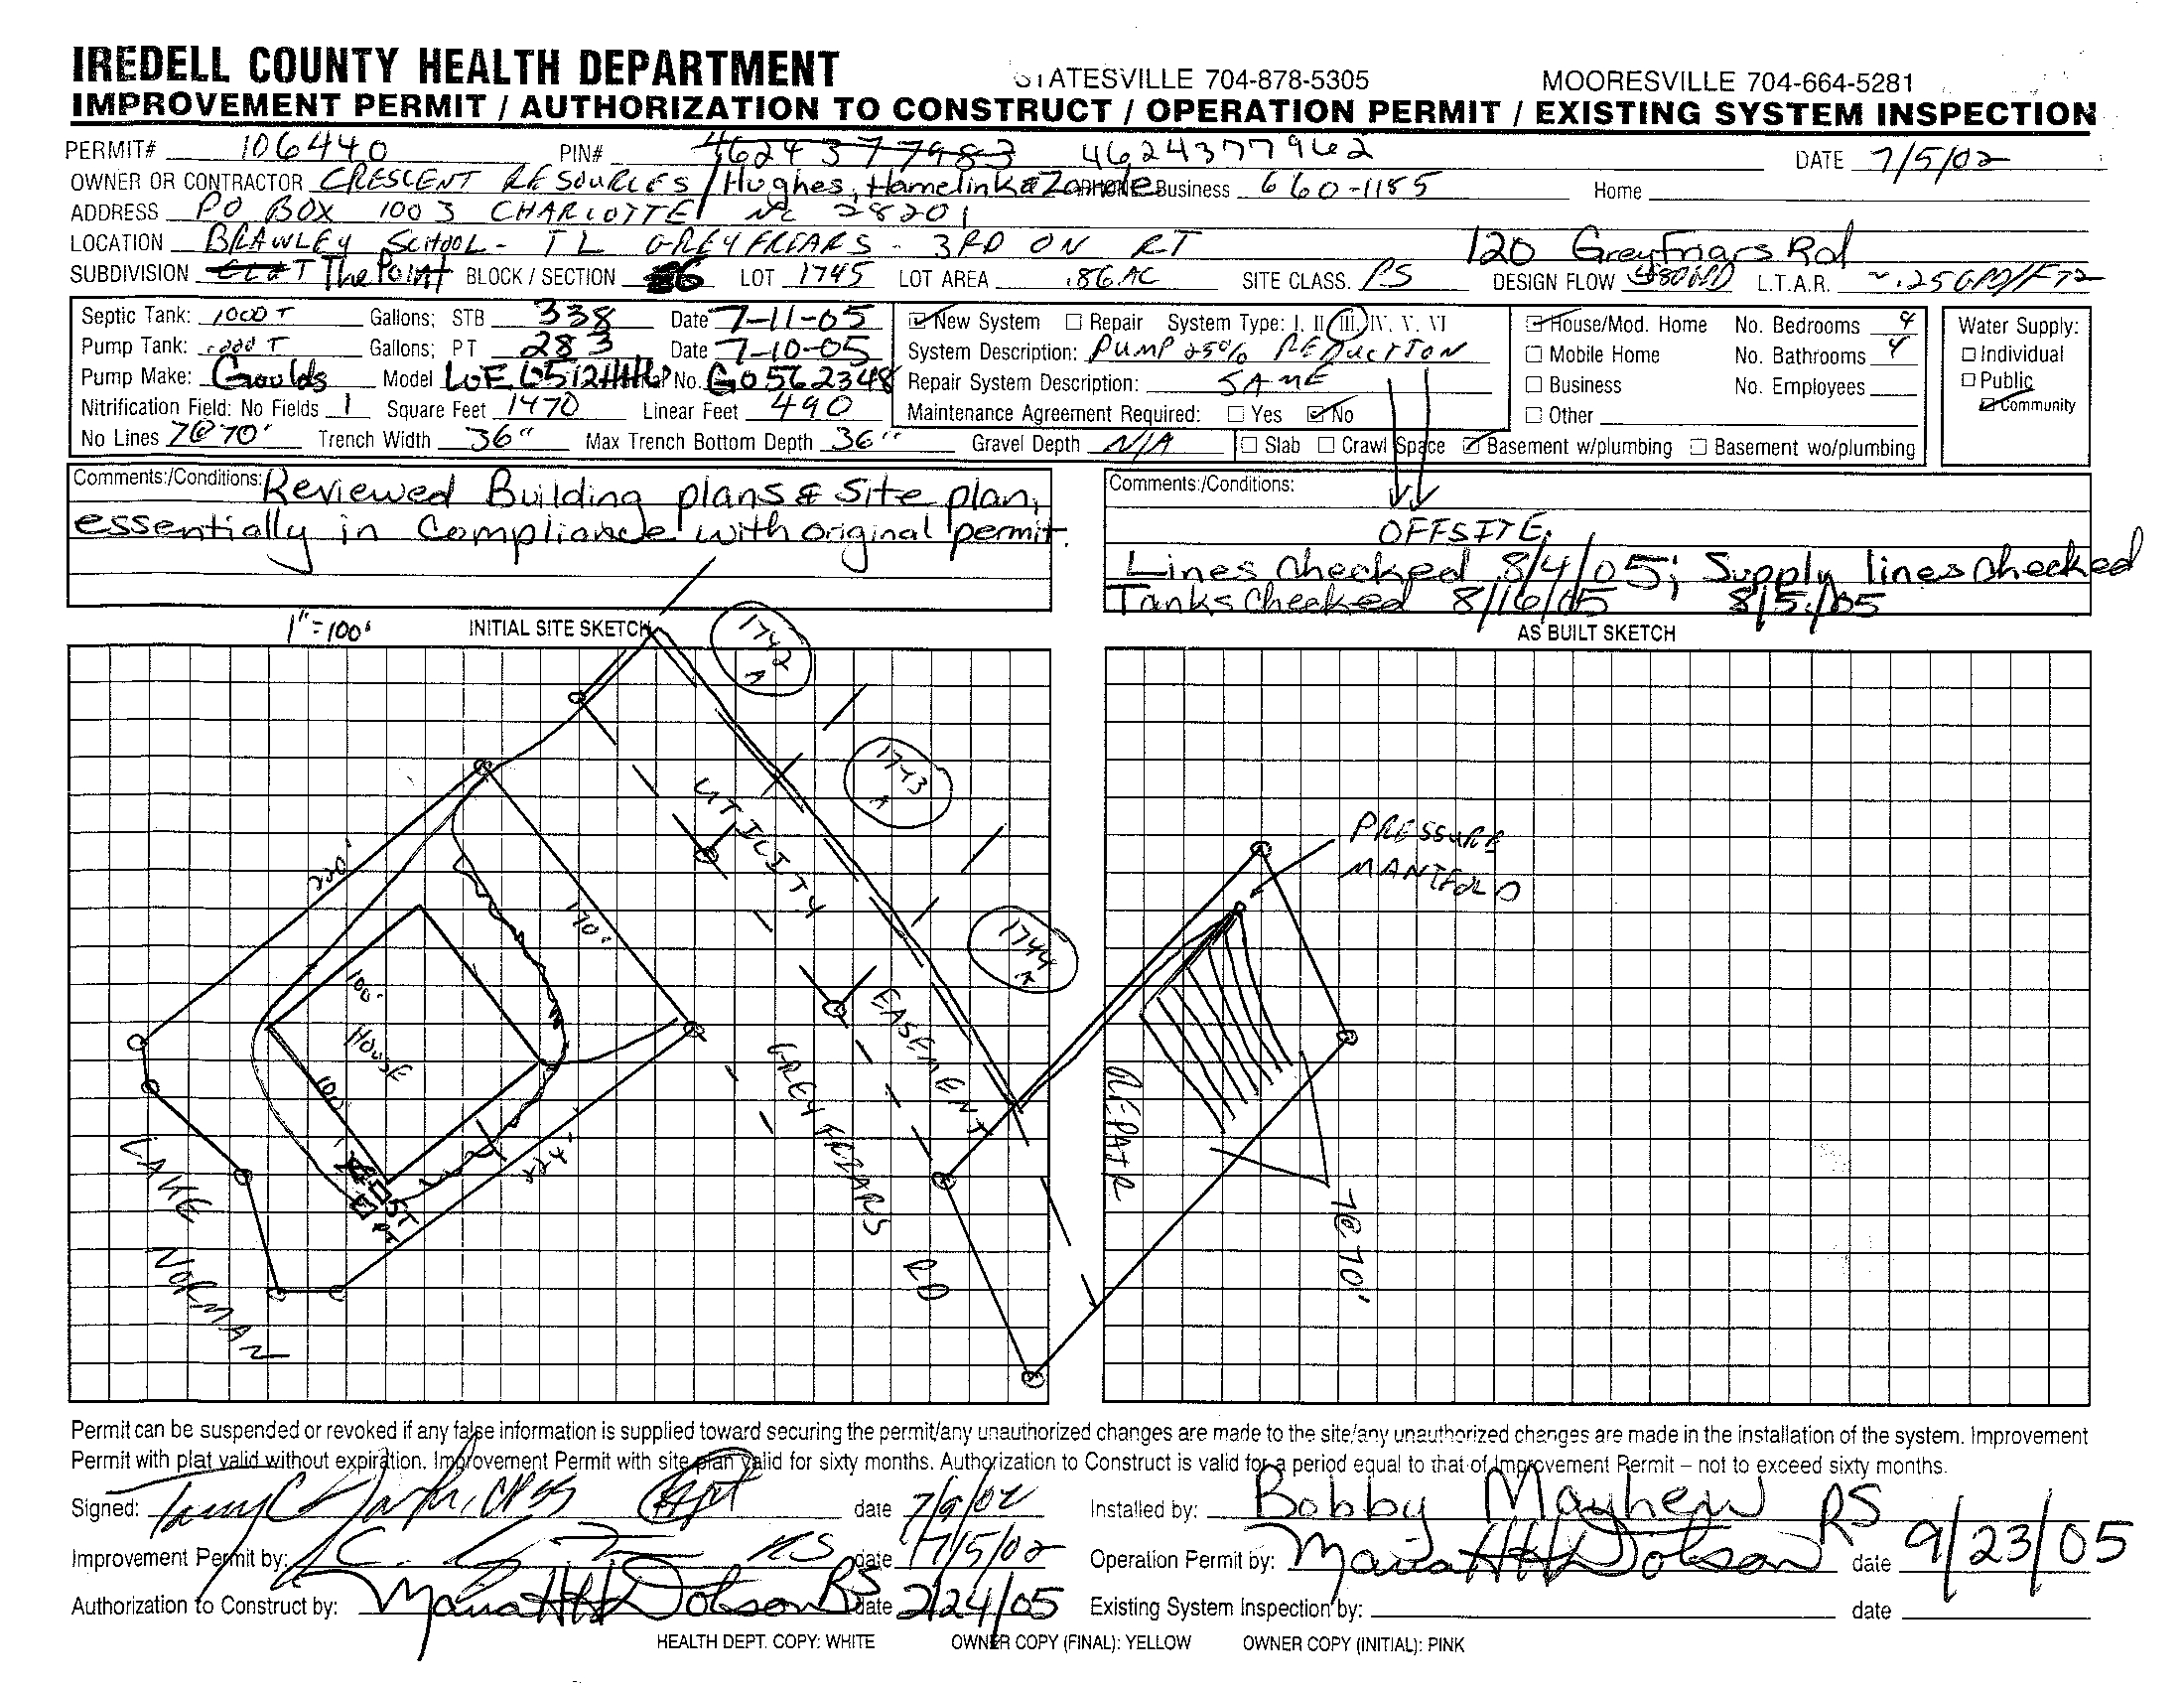 IREDELL COUNTY HEALTH DEPARTMENT STATESVILLE 704-878-5305 MOORESVILLE 704-664-5281
IMPROVEMENT PERMIT / AUTHORIZATION TO CONSTRUCT / OPERATION PERMIT / EXISTING SYSTEM INSPECTION
PERMIT# 106440 PIN# 4624377983 4624377962 DATE 7/5/02
OWNER OR CONTRACTOR CRESCENT RESOURCES / Hughes, Hamelink & Business 660-1185 Home
ADDRESS PO BOX 1003 CHARLOTTE NC 28201
LOCATION BRAWLEY SCHOOL - TL GREYFRIARS - 3RD ON RT 120 GreyFriars Rd
SUBDIVISION The Point BLOCK / SECTION LOT 1745 LOT AREA .86 AC SITE CLASS. PS DESIGN FLOW 480 GPD L.T.A.R. ~.25 GPD/FT2
Septic Tank: 1000 T Gallons; STB 338 Date 7-11-05 New System Repair System Type: I. II. III. IV. V. VI House/Mod. Home No. Bedrooms 4 Water Supply:
Pump Tank: 1000 T Gallons; PT 283 Date 7-10-05 System Description: PUMP 25% REDUCTION Mobile Home No. Bathrooms 4 Individual
Pump Make: Goulds Model No. G0562348 Repair System Description: SAME Business No. Employees Public
Nitrification Field: No Fields 1 Square Feet 1470 Linear Feet 490 Maintenance Agreement Required: Yes No Other Community
No Lines 7@70' Trench Width 36" Max Trench Bottom Depth 36" Gravel Depth N/A Slab Crawl Space Basement w/plumbing Basement wo/plumbing
Comments:/Conditions: Reviewed Building plans & Site plan,
essentially in Compliance with original permit.
Comments:/Conditions:
OFFSITE
Lines checked 8/4/05; Supply lines checked
Tanks checked 8/16/05 8/5/05
1"=100' INITIAL SITE SKETCH AS BUILT SKETCH
1742
A
1743
A
1744
A
UTILITY
EASEMENT
220'
170'
100'
HOUSE
100'
224'
ST
PT
LAKE
NORMAN
GREYFRIARS
RD
PRESSURE
MANIFOLD
REPAIR
7@70'
Permit can be suspended or revoked if any false information is supplied toward securing the permit/any unauthorized changes are made to the site/any unauthorized changes are made in the installation of the system. Improvement
Permit with plat valid without expiration. Improvement Permit with site plan valid for sixty months. Authorization to Construct is valid for a period equal to that of Improvement Permit – not to exceed sixty months.
Signed: date 7/9/02 Installed by: Bobby Mayhew
Improvement Permit by: RS date 7/5/02 Operation Permit by: Dobson RS date 9/23/05
Authorization to Construct by: Dobson RS date 2/24/05 Existing System Inspection by: date
HEALTH DEPT. COPY: WHITE OWNER COPY (FINAL): YELLOW OWNER COPY (INITIAL): PINK